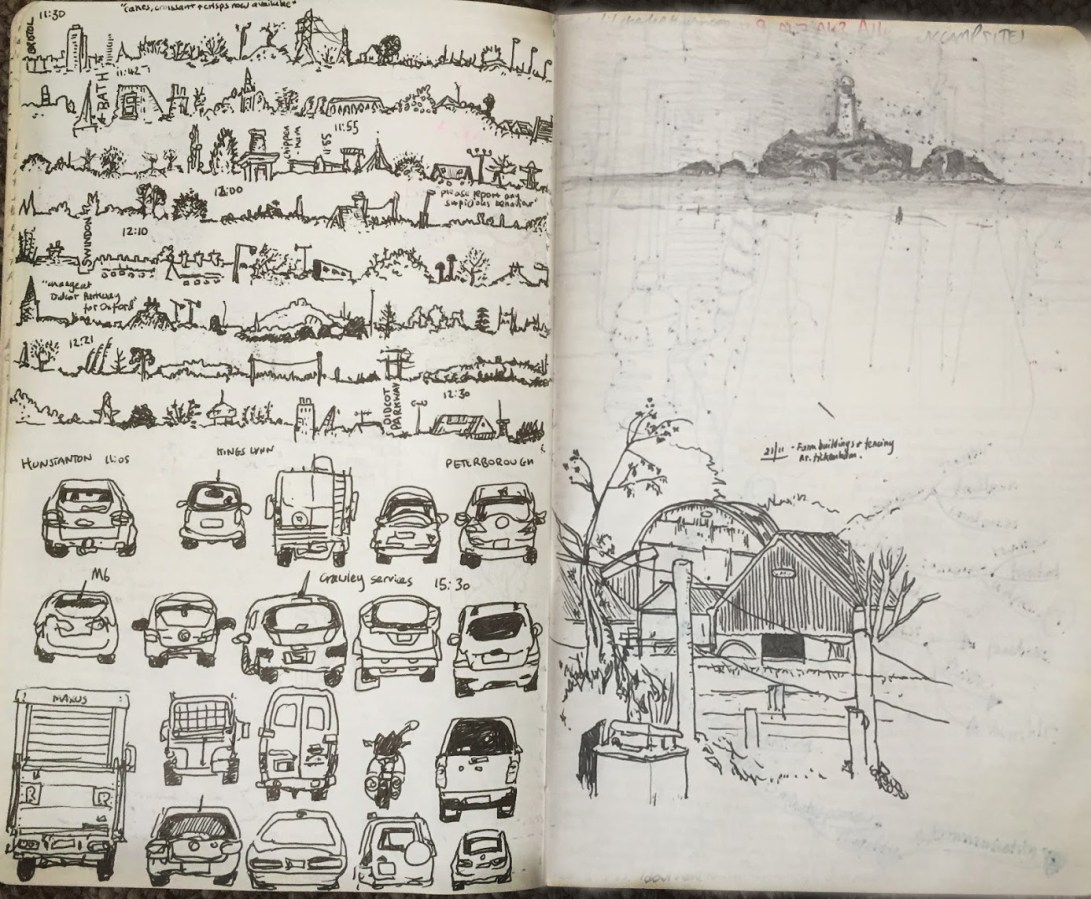 11:30
"cakes, croissant + crisps now available"
BRISTOL
BATH
11:42
CHIPPEN-
HAM
11:55
11:55
12:00
"please report any
suspicious behaviour"
SWINDON
12:10
"change at
Didcot Parkway
for Oxford"
12:21
DIDCOT
PARKWAY
12:30
HUNSTANTON 11:05
KINGS LYNN
PETERBOROUGH
M6
Crawley services 15:30
21/11 - Farm buildings & fencing
nr.